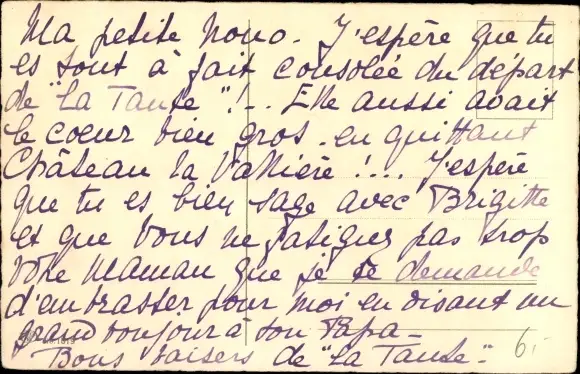 Ma petite Nono. J'espère que tu
es tout à fait consolée du départ
de "La Tante"!.. Elle aussi avait
le coeur bien gros. en quittant
Château la Vallière!... J'espère
que tu es bien sage avec Brigitte
et que vous ne fatiguez pas trop
votre Maman que je te demande
d'embrasser pour moi en disant un
grand bonjour à ton Papa_
Bons baisers de "La Tante".
6